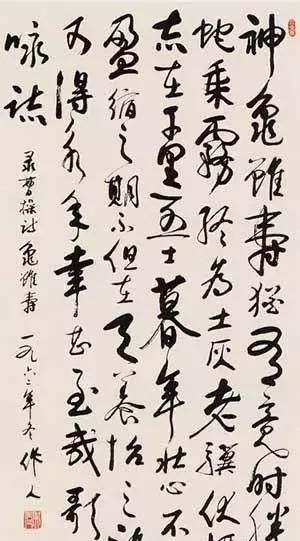 神龜雖壽猶有竟時騰
蛇乘霧終為土灰老驥伏
志在千里烈士暮年壯心不
盈縮之期不但在天養怡之
可得永年幸甚至哉歌
詠誌
录曹操詩龜雖壽 一九六二年冬 作人